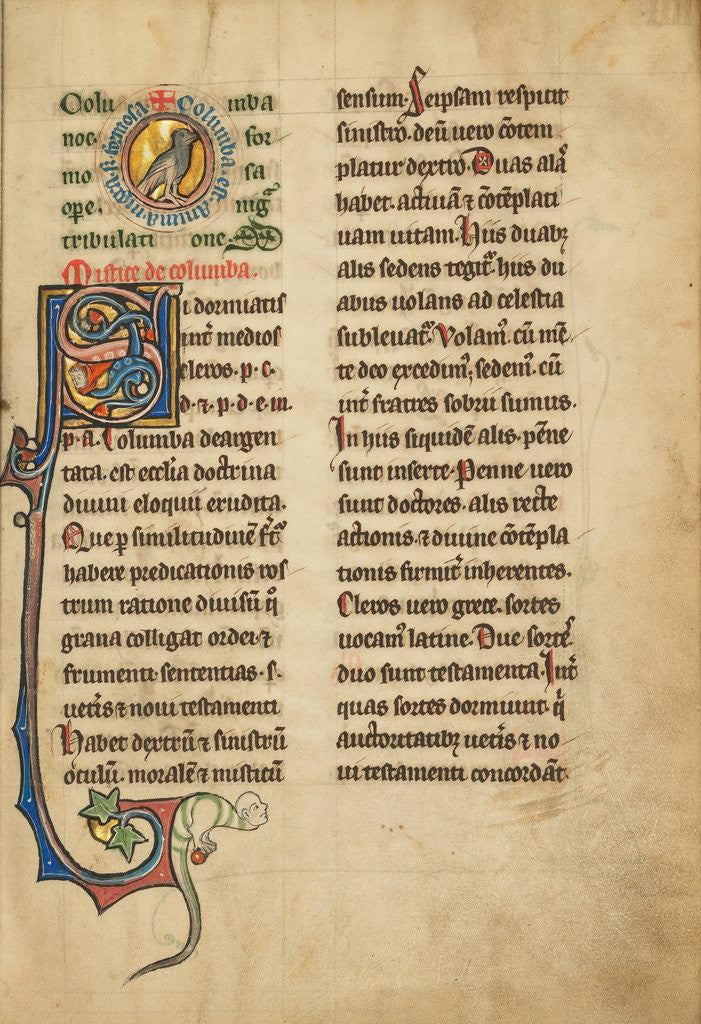 Colu mba
noe. for
mo sa
ope. nigᷓ
tribulati one.
✠ Columba est anima nigra s. formosa
Mistice de columba.
Si dormiatis
int̄ medios
cleros. p. c.
d. ⁊ p. d. e. in.
p. a. Columba deargen
tata. est ecclīa doctrina
diuini eloquii erudita.
Que ꝑ similitudinē
habere predicationis ros
trum ratione diuisū
grana colligat ordei ⁊
frumenti sententias. s.
uetīs ⁊ noui testamenti
Habet dextrū ⁊ sinistrū
oculū. moralē ⁊ misticū
sensum. Seipsam respicit
sinistro. deū uero cōtem
platur dextro. Duas alaᷤ
habet. actiuā ⁊ cōtēplati
uam uitam. Hiis duabꝫ
alis sedens tegit᷑. hiis du
abus uolans ad celestia
subleuat᷑. Volam᷒. cū mē
te deo excedim᷒; sedem᷒. cū
int̄ fratres sobrii sumus.
In hiis siquidē alis. pēne
sunt inserte. Penne uero
sunt doctores. alis recte
actionis. ⁊ diuine cōtēpla
tionis firmit̄ inherentes.
Cleros uero grece. sortes
uocam᷒ latine. Due sortes᷒
duo sunt testamenta. Int̄
quas sortes dormiunt. q̄
auctoritatibꝫ uetīs ⁊ no
ui testamenti concordāt.